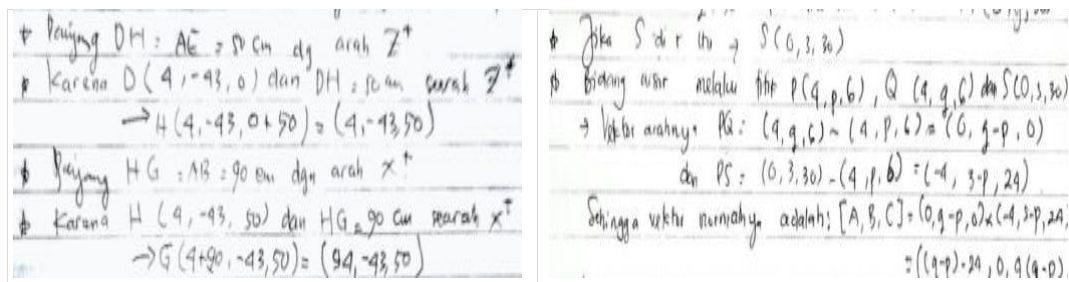 * Panjang DH = AE = 50 cm dg arah Z⁺
* Karena D(4, -43, 0) dan DH = 50 cm searah Z⁺
→ H(4, -43, 0+50) = (4, -43, 50)
* Panjang HG = AB = 90 cm dgn arah x⁺
* Karena H (4, -43, 50) dan HG = 90 cm searah x⁺
→ G(4+90, -43, 50) = (94, -43, 50)
* Jika S di r itu → S(0, 3, 30)
* Bidang irisan melalui titik P(4, p, 6), Q (4, q, 6) dan S(0, 3, 30)
→ Vektor arahnya PQ = (4, q, 6) - (4, p, 6) = (0, q-p, 0)
dan PS = (0, 3, 30) - (4, p, 6) = (-4, 3-p, 24)
Sehingga vektor normalnya adalah: [A, B, C] = (0, q-p, 0) x (-4, 3-p, 24)
= ((q-p)·24, 0, 4(q-p)